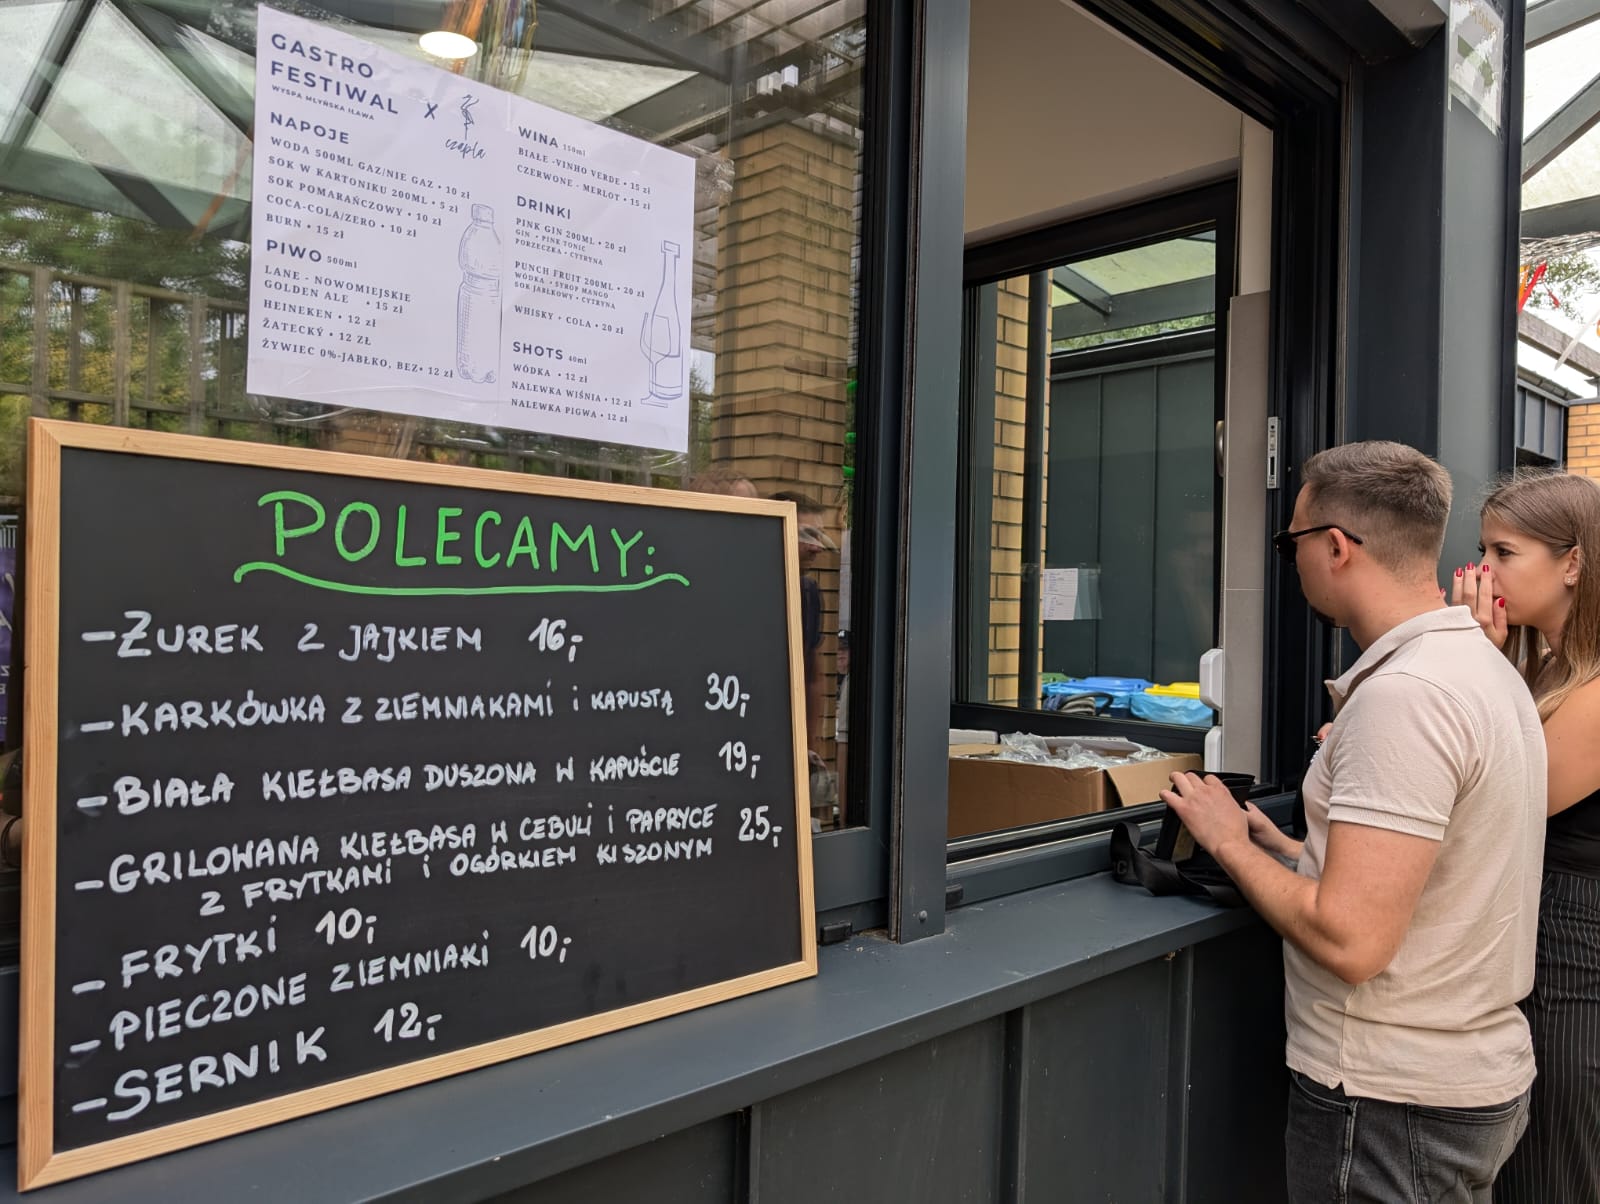 GASTRO
FESTIWAL
WYSPA MŁYŃSKA IŁAWA
X
czapla
NAPOJE
WODA 500ML GAZ/NIE GAZ • 10 zł
SOK W KARTONIKU 200ML • 5 zł
SOK POMARAŃCZOWY • 10 zł
COCA-COLA/ZERO • 10 zł
BURN • 15 zł
PIWO 500ml
LANE - NOWOMIEJSKIE
GOLDEN ALE • 15 zł
HEINEKEN • 12 zł
ŽATECKÝ • 12 ZŁ
ŻYWIEC 0%-JABŁKO, BEZ• 12 zł
WINA 150ml
BIAŁE -VINHO VERDE • 15 zł
CZERWONE - MERLOT • 15 zł
DRINKI
PINK GIN 200ML • 20 zł
GIN • PINK TONIC
PORZECZKA • CYTRYNA
PUNCH FRUIT 200ML • 20 zł
WÓDKA • SYROP MANGO
SOK JABŁKOWY • CYTRYNA
WHISKY + COLA • 20 zł
SHOTS 40ml
WÓDKA • 12 zł
NALEWKA WIŚNIA • 12 zł
NALEWKA PIGWA • 12 zł
POLECAMY:
- ŻUREK Z JAJKIEM 16,-
- KARKÓWKA Z ZIEMNIAKAMI i KAPUSTĄ 30,-
- BIAŁA KIEŁBASA DUSZONA W KAPUŚCIE 19,-
- GRILOWANA KIEŁBASA W CEBULI i PAPRYCE 25,-
Z FRYTKAMI i OGÓRKIEM KISZONYM
- FRYTKI 10,-
- PIECZONE ZIEMNIAKI 10,-
- SERNIK 12,-